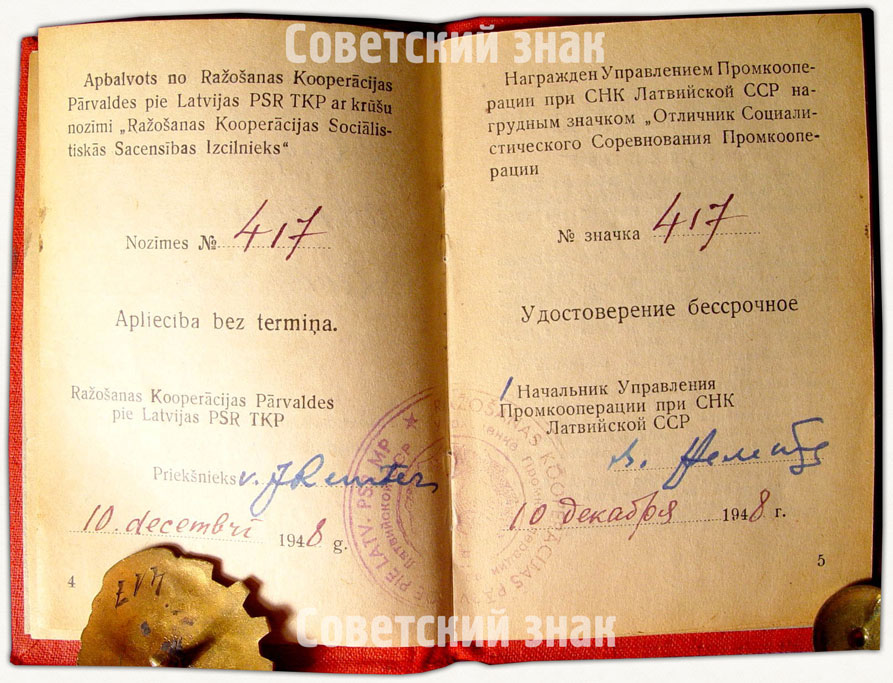 Советский знак
Apbalvots no Ražošanas Kooperācijas
Pārvaldes pie Latvijas PSR TKP ar krūšu
nozīmi „Ražošanas Kooperācijas Sociālis-
tiskās Sacensības Izcilnieks“
Nozīmes № 417
Apliecība bez termiņa.
Ražošanas Kooperācijas Pārvaldes
pie Latvijas PSR TKP
Priekšnieks
10. decembrī 1948 g.
4
417
Награжден Управлением Промкоопе-
рации при СНК Латвийской ССР на-
грудным значком „Отличник Социали-
стического Соревнования Промкоопе-
рации
№ значка 417
Удостоверение бессрочное
Начальник Управления
Промкооперации при СНК
Латвийской ССР
10 декабря 1948 г.
5
PIE LATV. PSR MP ★ RAŽOŠANAS KOOPERĀCIJAS
Советский знак